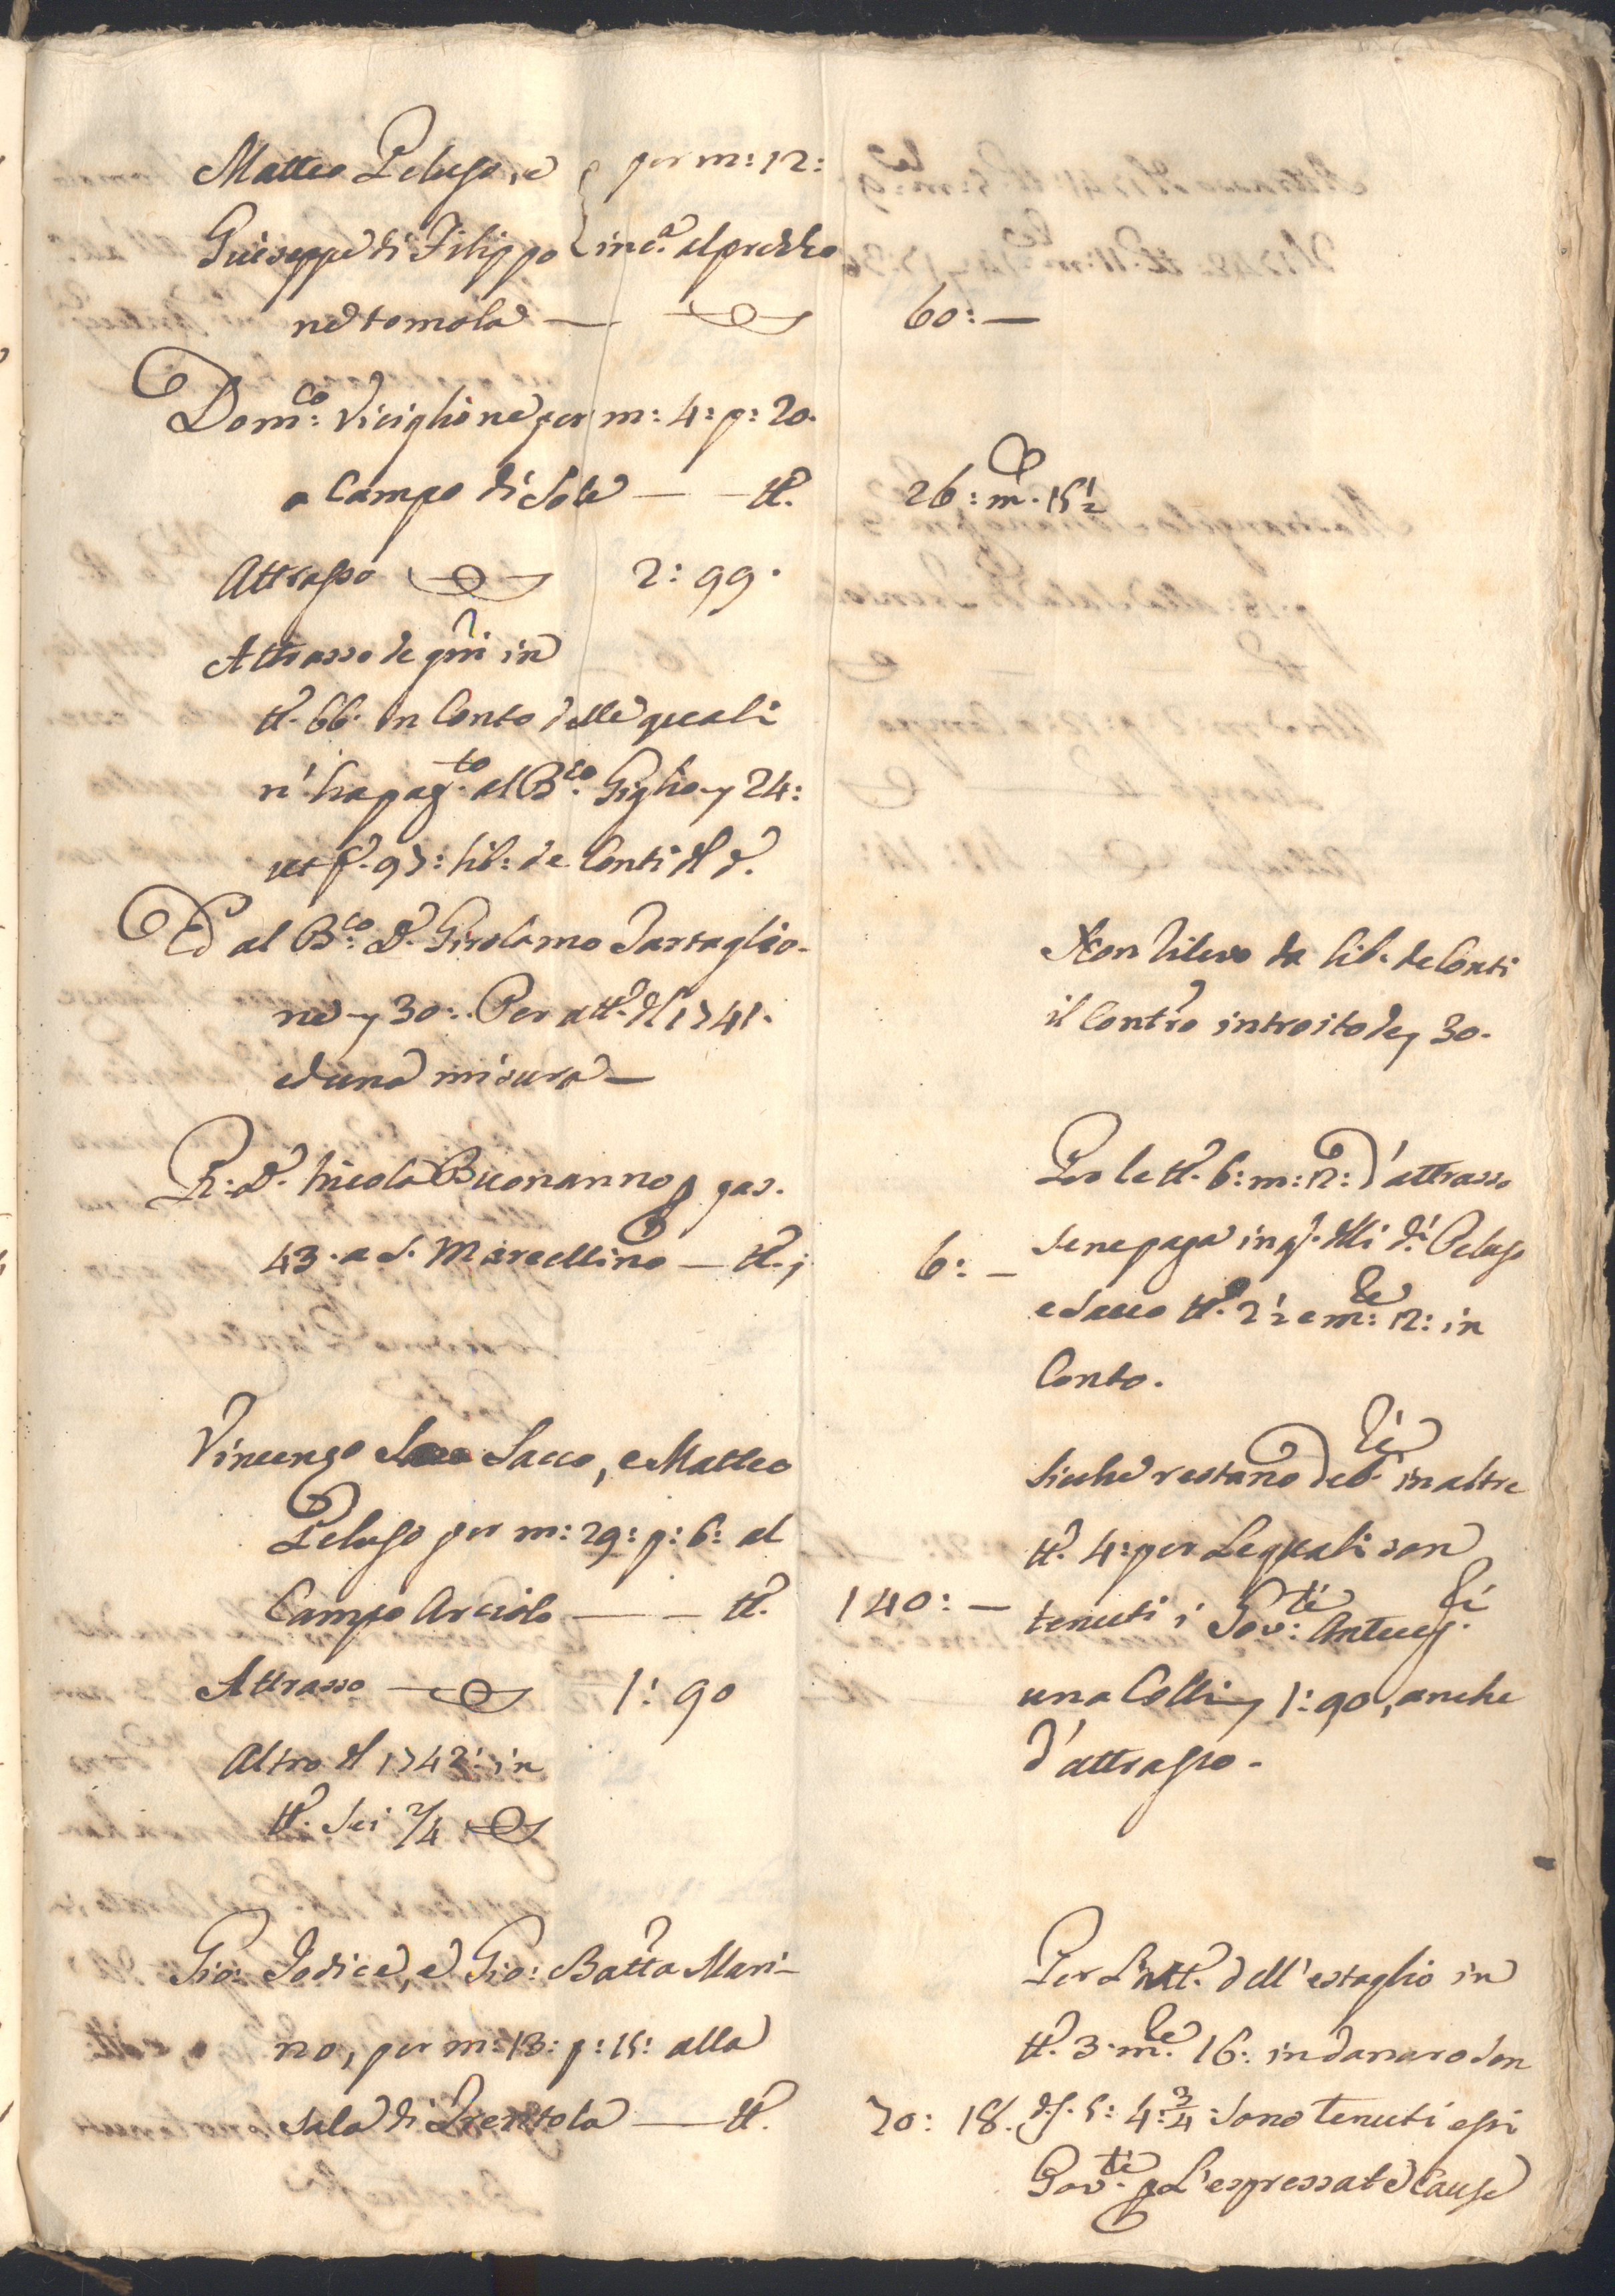 Matteo Peluso, e per m: 12:
Guiseppe di Filippo in ca. al prezzo
ne tomola — 60: —
Dom:co Viciglione per m: 4: p: 20.
a Campo di Sole — — tt. 26: m. 15 1/2
Attrasso 2: 99.
Attrasso de gni in
tt. 66. in Conto delle quali
n'ha pag.to al B:co Giglio 24:
ut f. 97: lib: de Conti
Ed al B:co D. Girolamo Tartaglio-
ne 30:. Per att. dl 1741.
ed una misura —
Non rilevo da lib. de Conti
il Contro introito de 30.
R: D. Nicola Buonanno p pas.
43. a S. Marcellino — tt. 6: —
Per le tt. 6: m: 12: d'attrasso
se ne paga in delli di Peluso
e Sacco tt. 2 1/2 e m:e 12: in
Conto.
Vincenzo Sacco, e Matteo
Peluso per m: 29: p: 6: al
Campo Arciolo — — tt. 140: —
Attrasso 1: 90
Altro dl 1742: in
tt. Sei 2/4
Sicche restano deb.ri in altre
tt. 4: per Le quali son
tenuti i Gov:ti Antecess.
una Colli 1: 90, anche
d'attrasso.
Gio: Iodice, e Gio: Batta Mari-
no, per m: 13: p: 15: alla
Sala di Trentola — tt. 70: 18.
Per L'att. dell'estaglio in
tt. 3. m:e 16: in danaro son
5: 4: 3/4: Sono tenuti essi
Gov:ti p L'espressate Cause